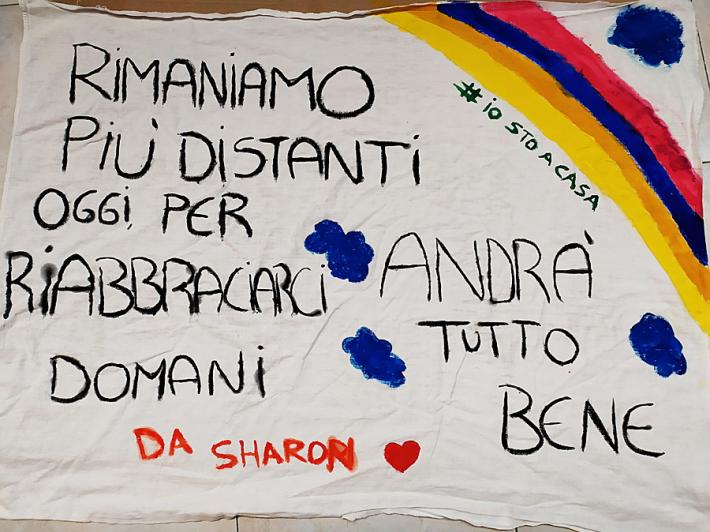 RIMANIAMO
PIÙ DISTANTI
OGGI, PER
RIABBRACIARCI
DOMANI
DA SHARON
#IO STO A CASA
ANDRÀ
TUTTO
BENE